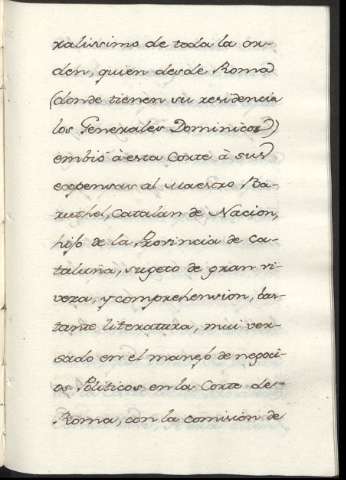 ralissimo de toda la or-
den, quien desde Roma
(donde tienen su residencia
los Generales Dominicos)
embió à esta Corte à sus
expensas al Maestro Ba-
ruthel, Catalan de Nacion,
hijo de la Provincia de Ca-
taluña, sugeto de gran vi-
veza, y comprehension, bas-
tante literatura, mui ver-
sado en el manejo de negoci-
os Politicos en la Corte de
Roma, con la comision de